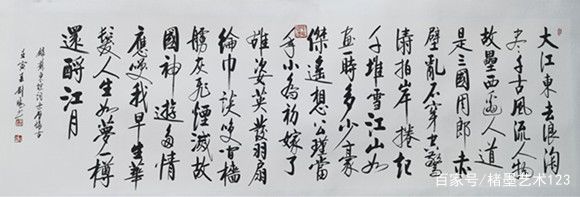 大江東去浪淘
尽千古風流人物
故壘西邊人道
是三國周郎赤
壁亂石穿空驚
濤拍岸捲起
千堆雪江山如
畫一時多少豪
傑遙想公瑾當
年小喬初嫁了
雄姿英發羽扇
綸巾談笑間檣
艣灰飛煙滅故
國神遊多情
應笑我早生華
髮人生如夢一樽
還酹江月
壬寅
百家号/楮墨艺术123